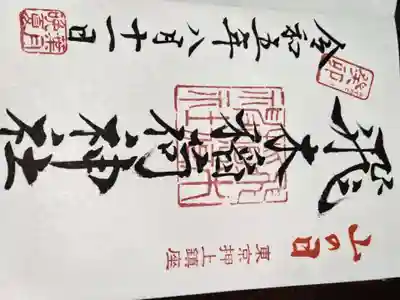 山の日
東京押上鎮座
飛木稲荷神社
癸卯
令和五年八月十一日
葉月